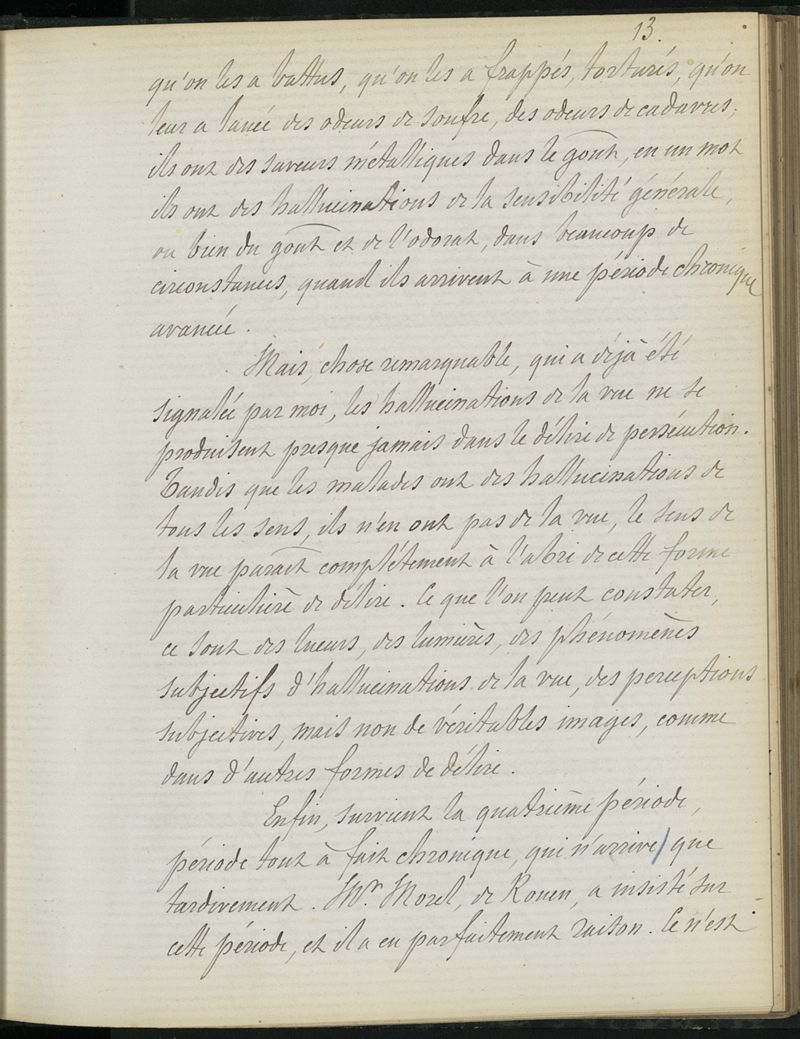 13.
qu'on les a battus, qu'on les a frappés, torturés, qu'on
leur a lancé des odeurs de soufre, des odeurs de cadavres;
ils ont des saveurs métalliques dans le goût, en un mot
ils ont des hallucinations de la sensibilité générale,
ou bien du goût et de l'odorat, dans beaucoup de
circonstances, quand ils arrivent à une période chronique
avancée.
Mais, chose remarquable, qui a déjà été
signalée par moi, les hallucinations de la vue ne se
produisent presque jamais dans le délire de persécution.
Tandis que les malades ont des hallucinations de
tous les sens, ils n'en ont pas de la vue, le sens de
la vue paraît complétement à l'abri de cette forme
particulière de délire. Ce que l'on peut constater,
ce sont des lueurs, des lumières, des phénomènes
subjectifs d'hallucinations de la vue, des perceptions
subjectives, mais non de véritables images, comme
dans d'autres formes de délire.
Enfin, survient la quatrième période,
période tout à fait chronique, qui n'arrive que
tardivement. Mr. Morel, de Rouen, a insisté sur
cette période, et il a eu parfaitement raison. Ce n'est